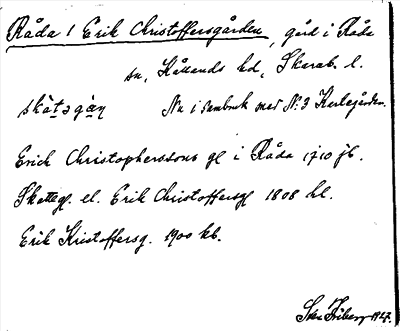 Råda 1 Erik Christoffersgården, gård i Råda
sn, Kållands hd, Skarab. l.
skátəgàn Nu i sambruk med N:3 Karlsgården.
Erich Christopherssons gl i Råda 1710 jb.
Skattegl el. Erik Christoffersgl 1808 hl.
Erik Kristoffersg. 1900 kb.
Friberg 1927.